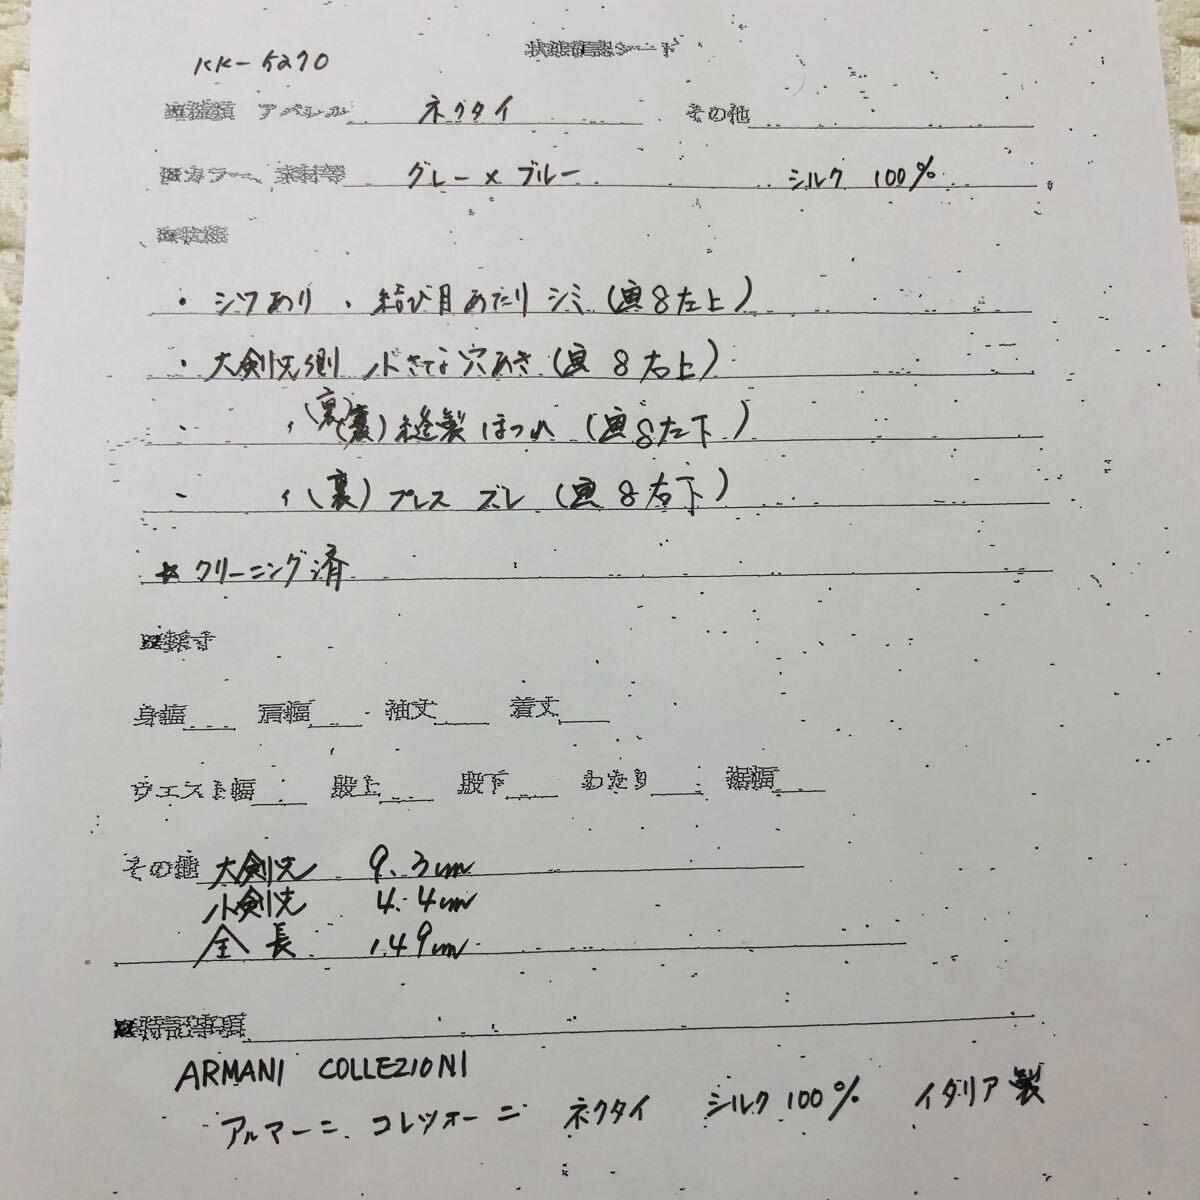 KK-5270
状態確認シート
■種類 アパレル ネクタイ その他
■カラー、素材等 グレー×ブルー シルク 100%
■状態
・シワあり、結び目あたり シミ(画8左上)
・大剣先側 小さな穴あき(画 8右上)
・ 〃(裏)縫製 ほつれ (画8左下)
・ 〃(裏)プレス ズレ (画8右下)
☆クリーニング済
■採寸
身幅 肩幅 袖丈 着丈
ウエスト幅 股上 股下 わたり 裾幅
その他 大剣先 9.3cm
小剣先 4.4cm
全長 149cm
■特記事項
ARMANI COLLEZIONI
アルマーニ コレツォーニ ネクタイ シルク100% イタリア製